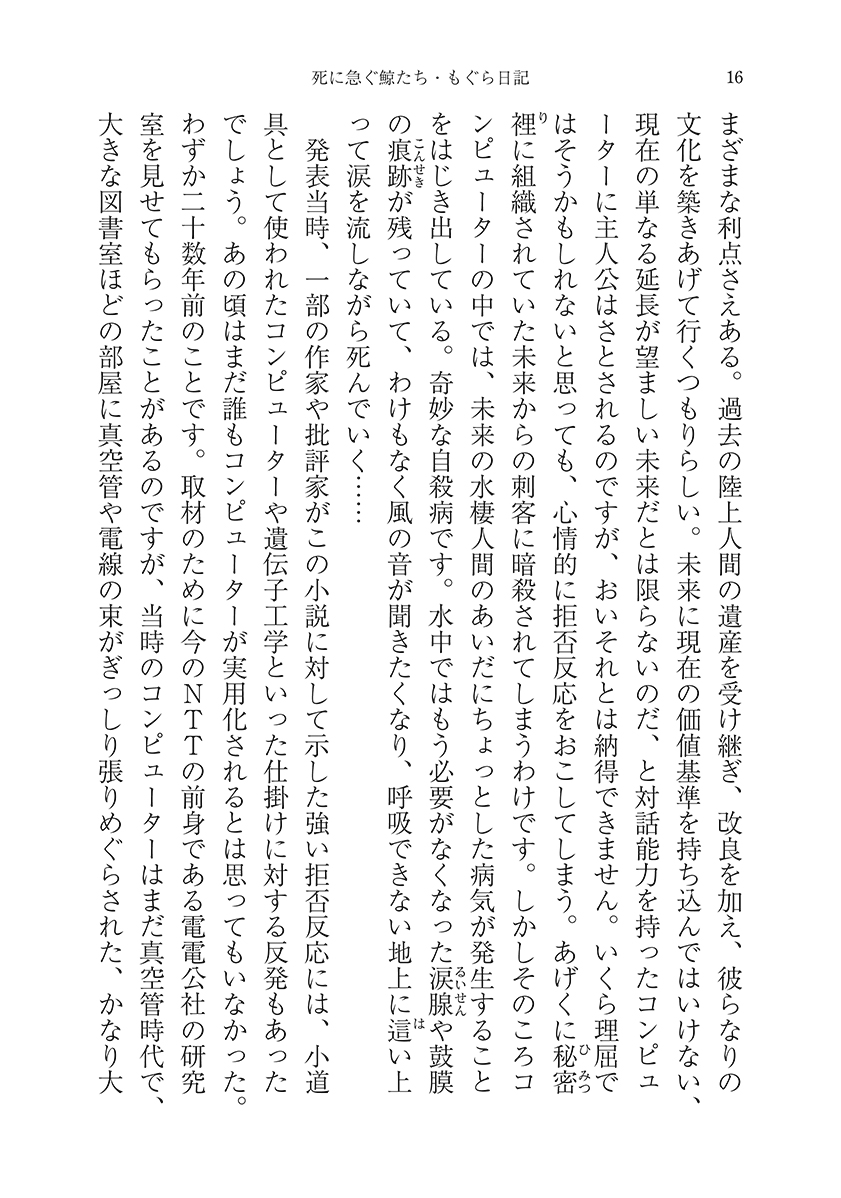 死に急ぐ鯨たち・もぐら日記
16
まざまな利点さえある。過去の陸上人間の遺産を受け継ぎ、改良を加え、彼らなりの
文化を築きあげて行くつもりらしい。未来に現在の価値基準を持ち込んではいけない、
現在の単なる延長が望ましい未来だとは限らないのだ、と対話能力を持ったコンピュ
ーターに主人公はさとされるのですが、おいそれとは納得できません。いくら理屈で
はそうかもしれないと思っても、心情的に拒否反応をおこしてしまう。あげくに秘密
裡に組織されていた未来からの刺客に暗殺されてしまうわけです。しかしそのころコ
ンピューターの中では、未来の水棲人間のあいだにちょっとした病気が発生すること
をはじき出している。奇妙な自殺病です。水中ではもう必要がなくなった涙腺や鼓膜
の痕跡が残っていて、わけもなく風の音が聞きたくなり、呼吸できない地上に這い上
って涙を流しながら死んでいく……
発表当時、一部の作家や批評家がこの小説に対して示した強い拒否反応には、小道
具として使われたコンピューターや遺伝子工学といった仕掛けに対する反発もあった
でしょう。あの頃はまだ誰もコンピューターが実用化されるとは思ってもいなかった。
わずか二十数年前のことです。取材のために今のＮＴＴの前身である電電公社の研究
室を見せてもらったことがあるのですが、当時のコンピューターはまだ真空管時代で、
大きな図書室ほどの部屋に真空管や電線の束がぎっしり張りめぐらされた、かなり大